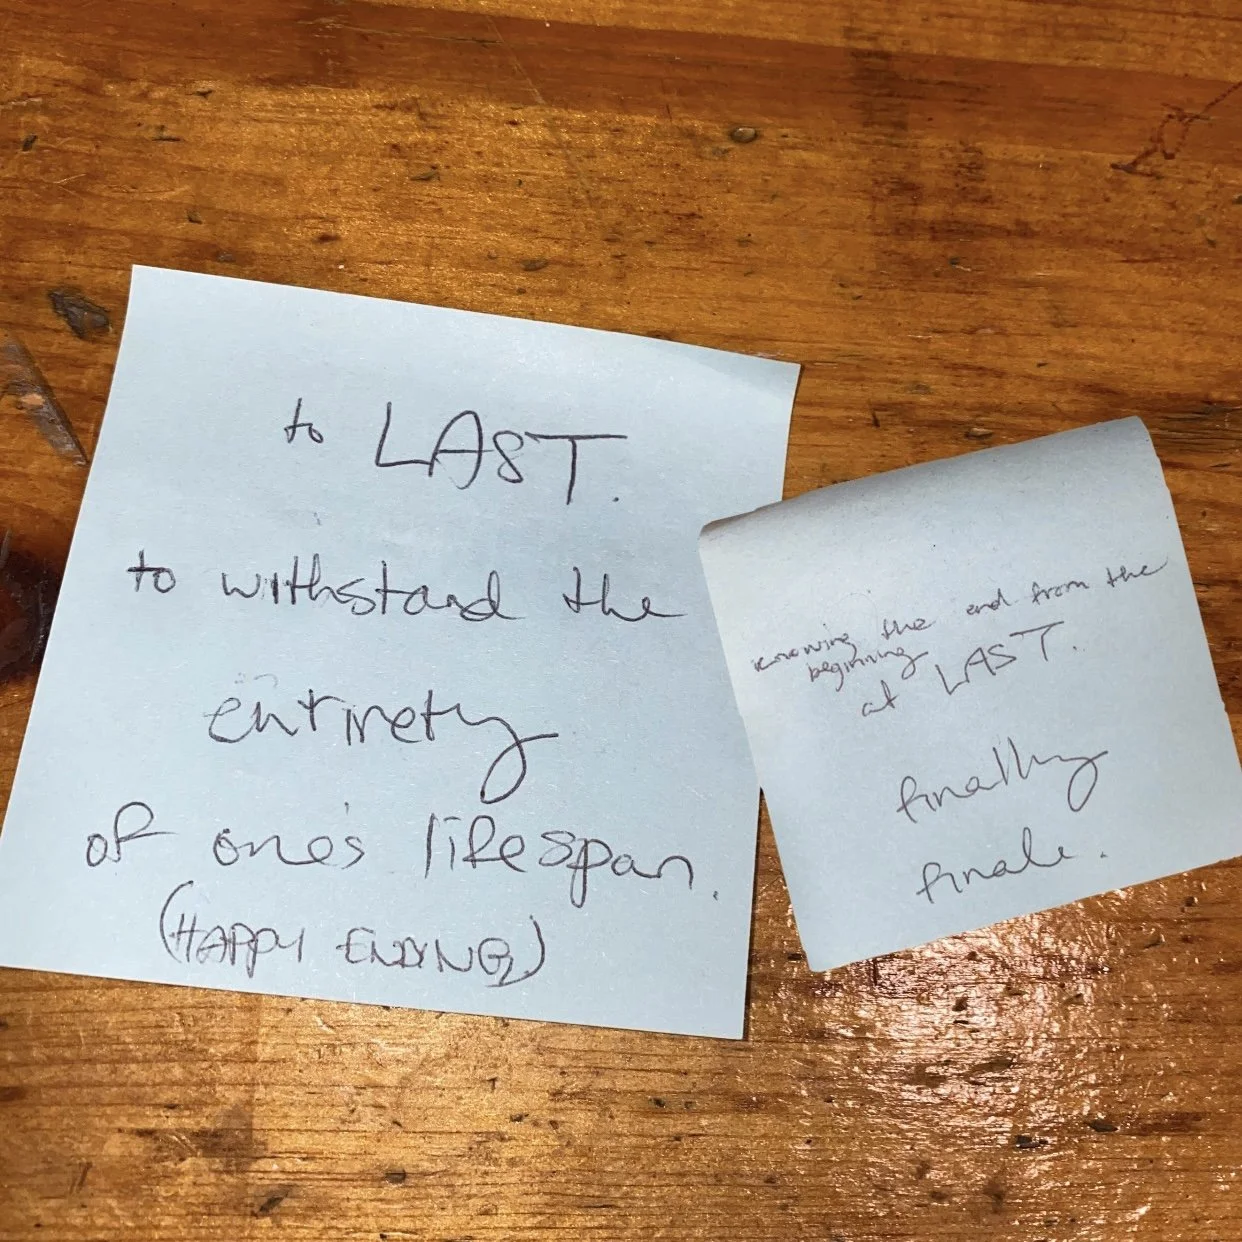 to LAST.
to withstand the
entirety
of one's lifespan.
(HAPPY ENDING)
knowing the end from the
beginning
at LAST.
finally
finale.